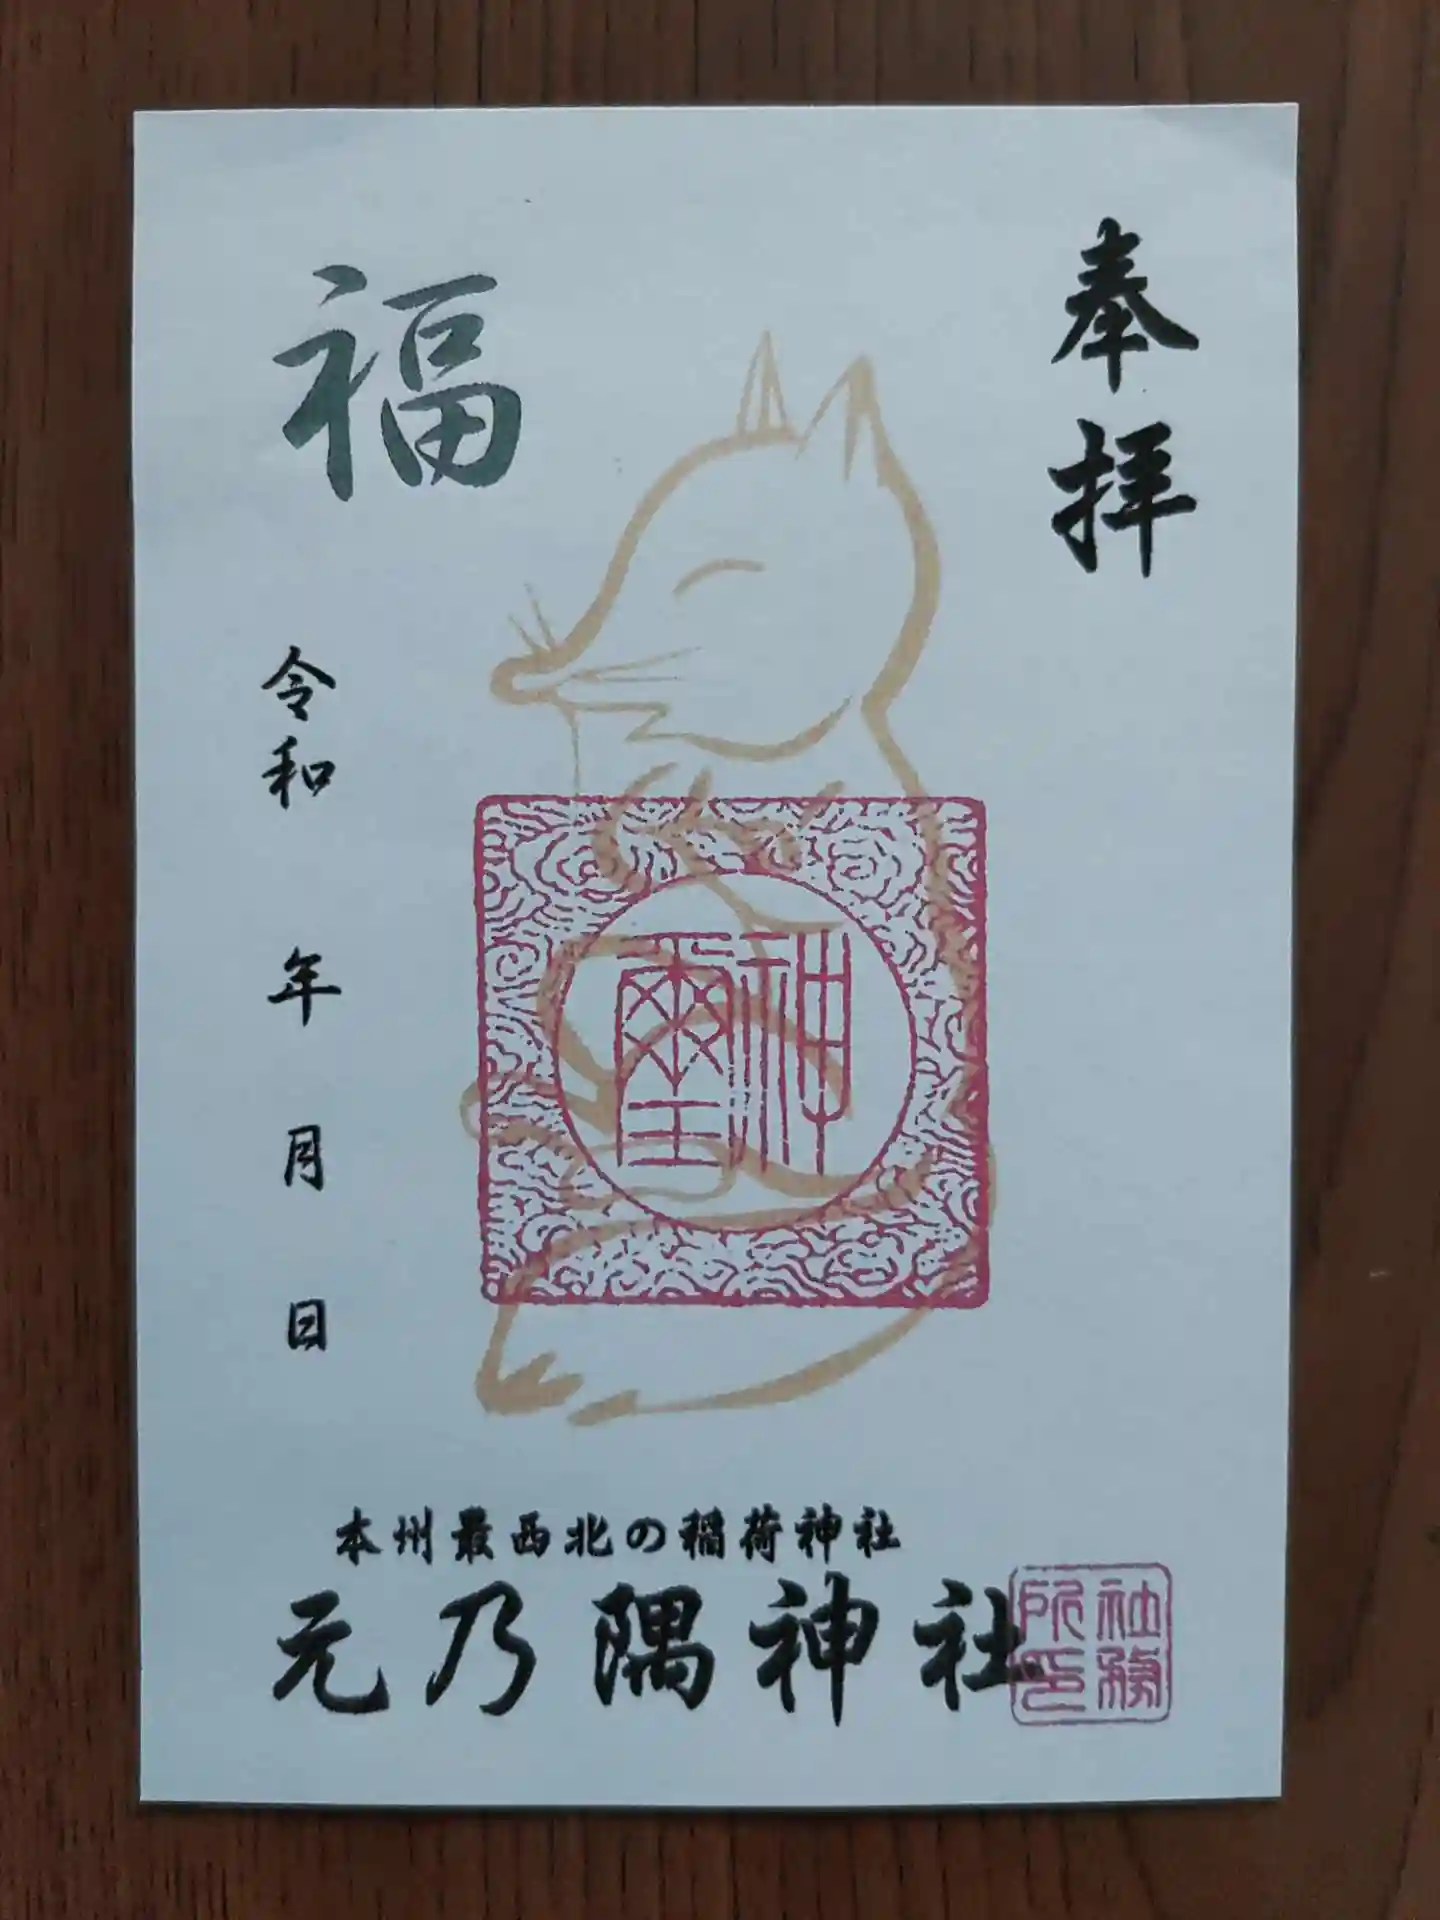 奉拝
福
令和 年 月 日
神璽
本州最西北の稲荷神社
元乃隅神社
社務所印